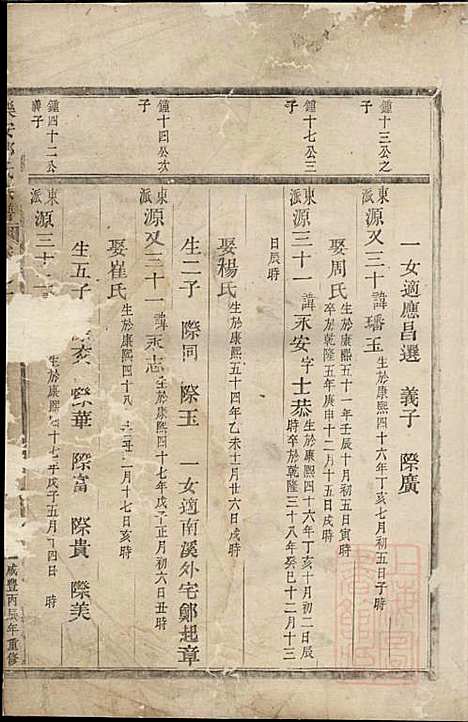 鐘十三公之
子
一女適應昌選 義子 際廣
東
派
源又三十 諱璠玉 生於康熙四十六年丁亥七月初五日子時
娶周氏 生於康熙五十一年壬辰十月初五日寅時
卒於乾隆五年庚申十二月十五日戌時
鐘十七公三
子
東
派
源三十一 諱永安字士恭 生於康熙四十六年丁亥十月初二日辰
時卒於乾隆三十八年癸巳十二月十三
日辰時
娶楊氏 生於康熙五十四年乙未十月廿六日戌時
生二子 際同 際玉 一女適南溪外宅鄭起章
鐘十四公次
子
東
派
源又三十一 諱永志 生於康熙四十七年戊子正月初六日丑時
娶崔氏 生於康熙四十八 二月十七日亥時
生五子 際亥 際華 際富 際貴 際美
鐘四十二公
義子
東
派
源三十二 生於康熙四十七年戊子五月 四日 時
咸豐丙辰年重修